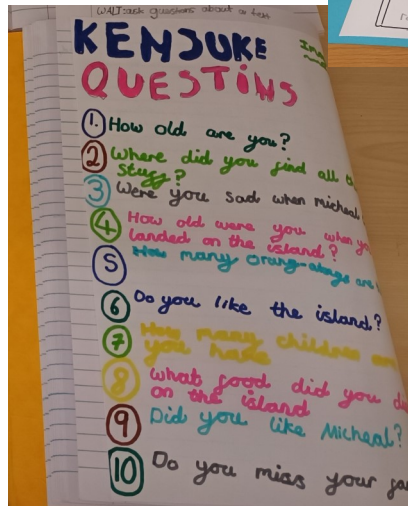 WALT: ask questions about a text
KENSUKE
QUESTINS
1. How old are you?
2 Where did you find all
stuff?
3 Were you sad when micheal
4 How old were you when
landed on the island?
5 How many orang-utangs are
6 Do you like the island?
7 How many children
you have
8 what food did you
on the island
9 Did you like Micheal?
10 Do you miss your